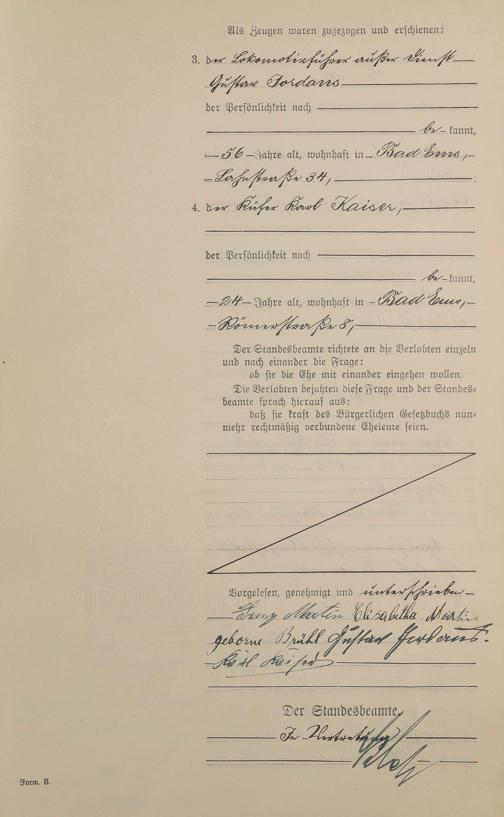 Als Zeugen waren zugezogen und erschienen:
3. der Lokomotivführer außer Dienst
Gustav Jordans
der Persönlichkeit nach
be-kannt,
56 Jahre alt, wohnhaft in Bad Ems,
Lahnstraße 34,
4. der Küfer Karl Kaiser,
der Persönlichkeit nach
be-kannt,
24 Jahre alt, wohnhaft in Bad Ems,
Römerstraße 8,
Der Standesbeamte richtete an die Verlobten einzeln
und nach einander die Frage:
ob sie die Ehe mit einander eingehen wollen.
Die Verlobten bejahten diese Frage und der Standes-
beamte sprach hierauf aus:
daß sie kraft des Bürgerlichen Gesetzbuchs nun-
mehr rechtmäßig verbundene Eheleute seien.
Vorgelesen, genehmigt und unterschrieben
Martin Elisabetha Martin
geborne Brühl Gustav Jordans.
Karl Kaiser
Der Standesbeamte
In Vertretung
Form. B.